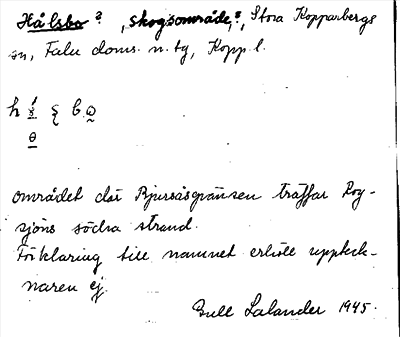 Hålsbo?, skogsområde,?, Stora Kopparbergs
sn, Falu doms. n. tg, Kopp. l.
område där Bjursåsgränsen träffar Rog-
sjöns södra strand.
Förklaring till namnet erhöll uppteck-
naren ej.
Gull Lalander 1945.